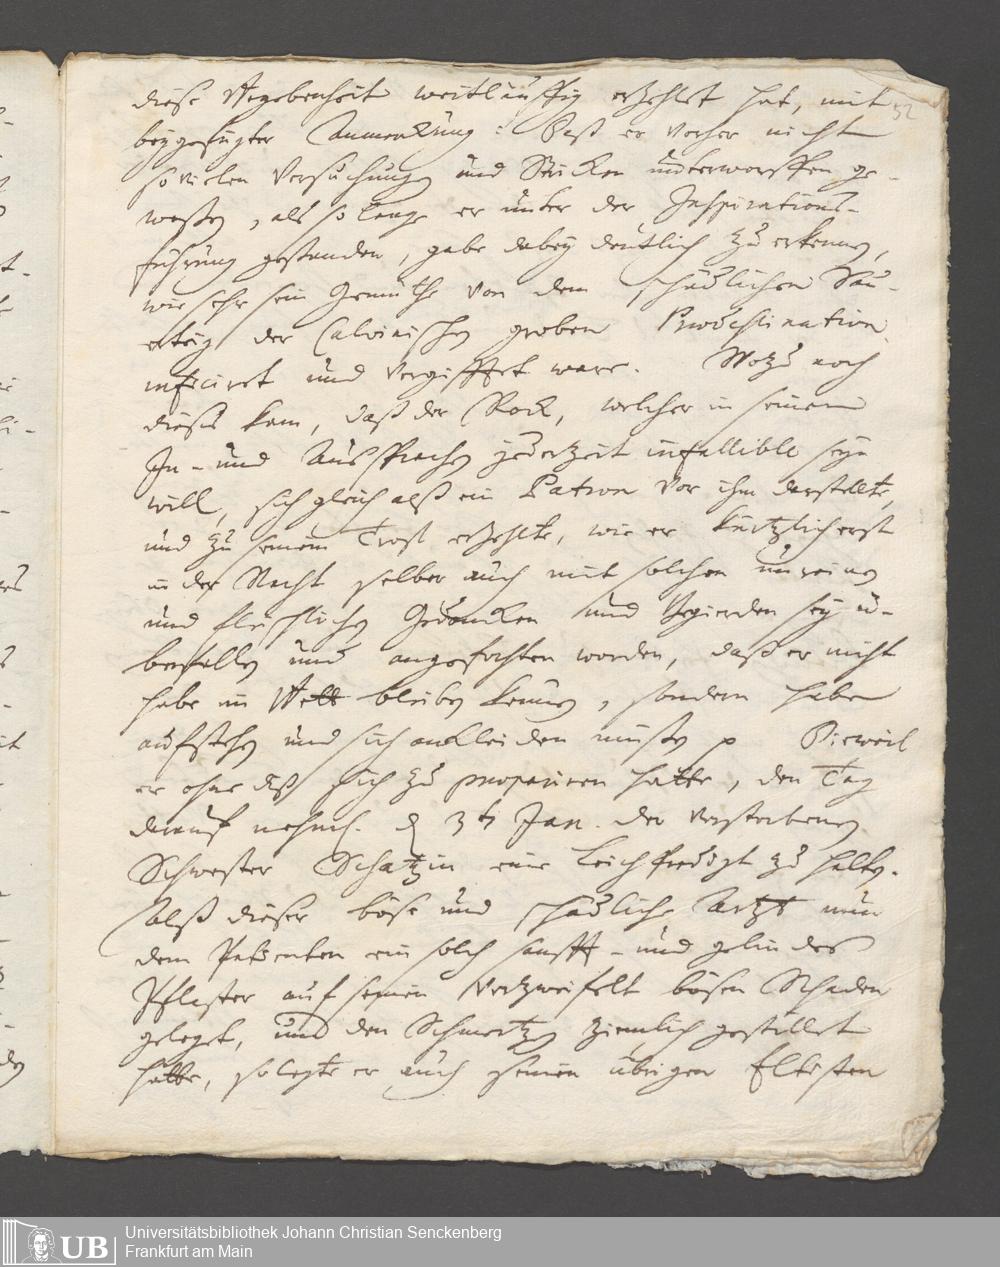 52
diese Begebenheit weitläuffig erzehlet hat, mit
beygefügter Anmerckung: Daß er vorher nicht
so vielen Versuchungen und Stricken unterworffen ge-
weßen, als so lange er unter der Inspirations-
führung gestanden, gabe dabey deutlich zu erkennen,
wie sehr sein Gemüthe von dem schädlichen Sau-
erteig der Calvinischen groben Praedestination
inficiret und vergifftet ware. Wozu noch
dieses kam, daß der Rock, welcher in seinem
In- und Aussprachen jederzeit infallible seyn
will, sich gleich alß ein Patron vor ihm darstellte,
und zu seinem Trost erzehlte, wie er kürtzlich erst
in der Nacht selber auch mit solchen unreinen
und fleischlichen Gedancken und Begierden sey ü-
berfallen und angefochten worden, daß er nicht
habe im Bett bleiben können, sondern habe
aufstehen und sich ankleiden müßen p Dieweil
er ohne diß sich zu praepariren hatte, den Tag
darauf nehml. d 3t Jan. der verstorbenen
Schwester Schatzin eine Leichpredigt zu halten.
Alß dieser böse und schädliche Artzt nun
dem Patienten ein solch sanfft- und gelindes
Pflaster auf seinen verzweifelt bösen Schaden
geleget, und den Schmertzen ziemlich gestillet
hatte, so legte er auch seinen übrigen Eltesten
UB
Universitätsbibliothek Johann Christian Senckenberg
Frankfurt am Main